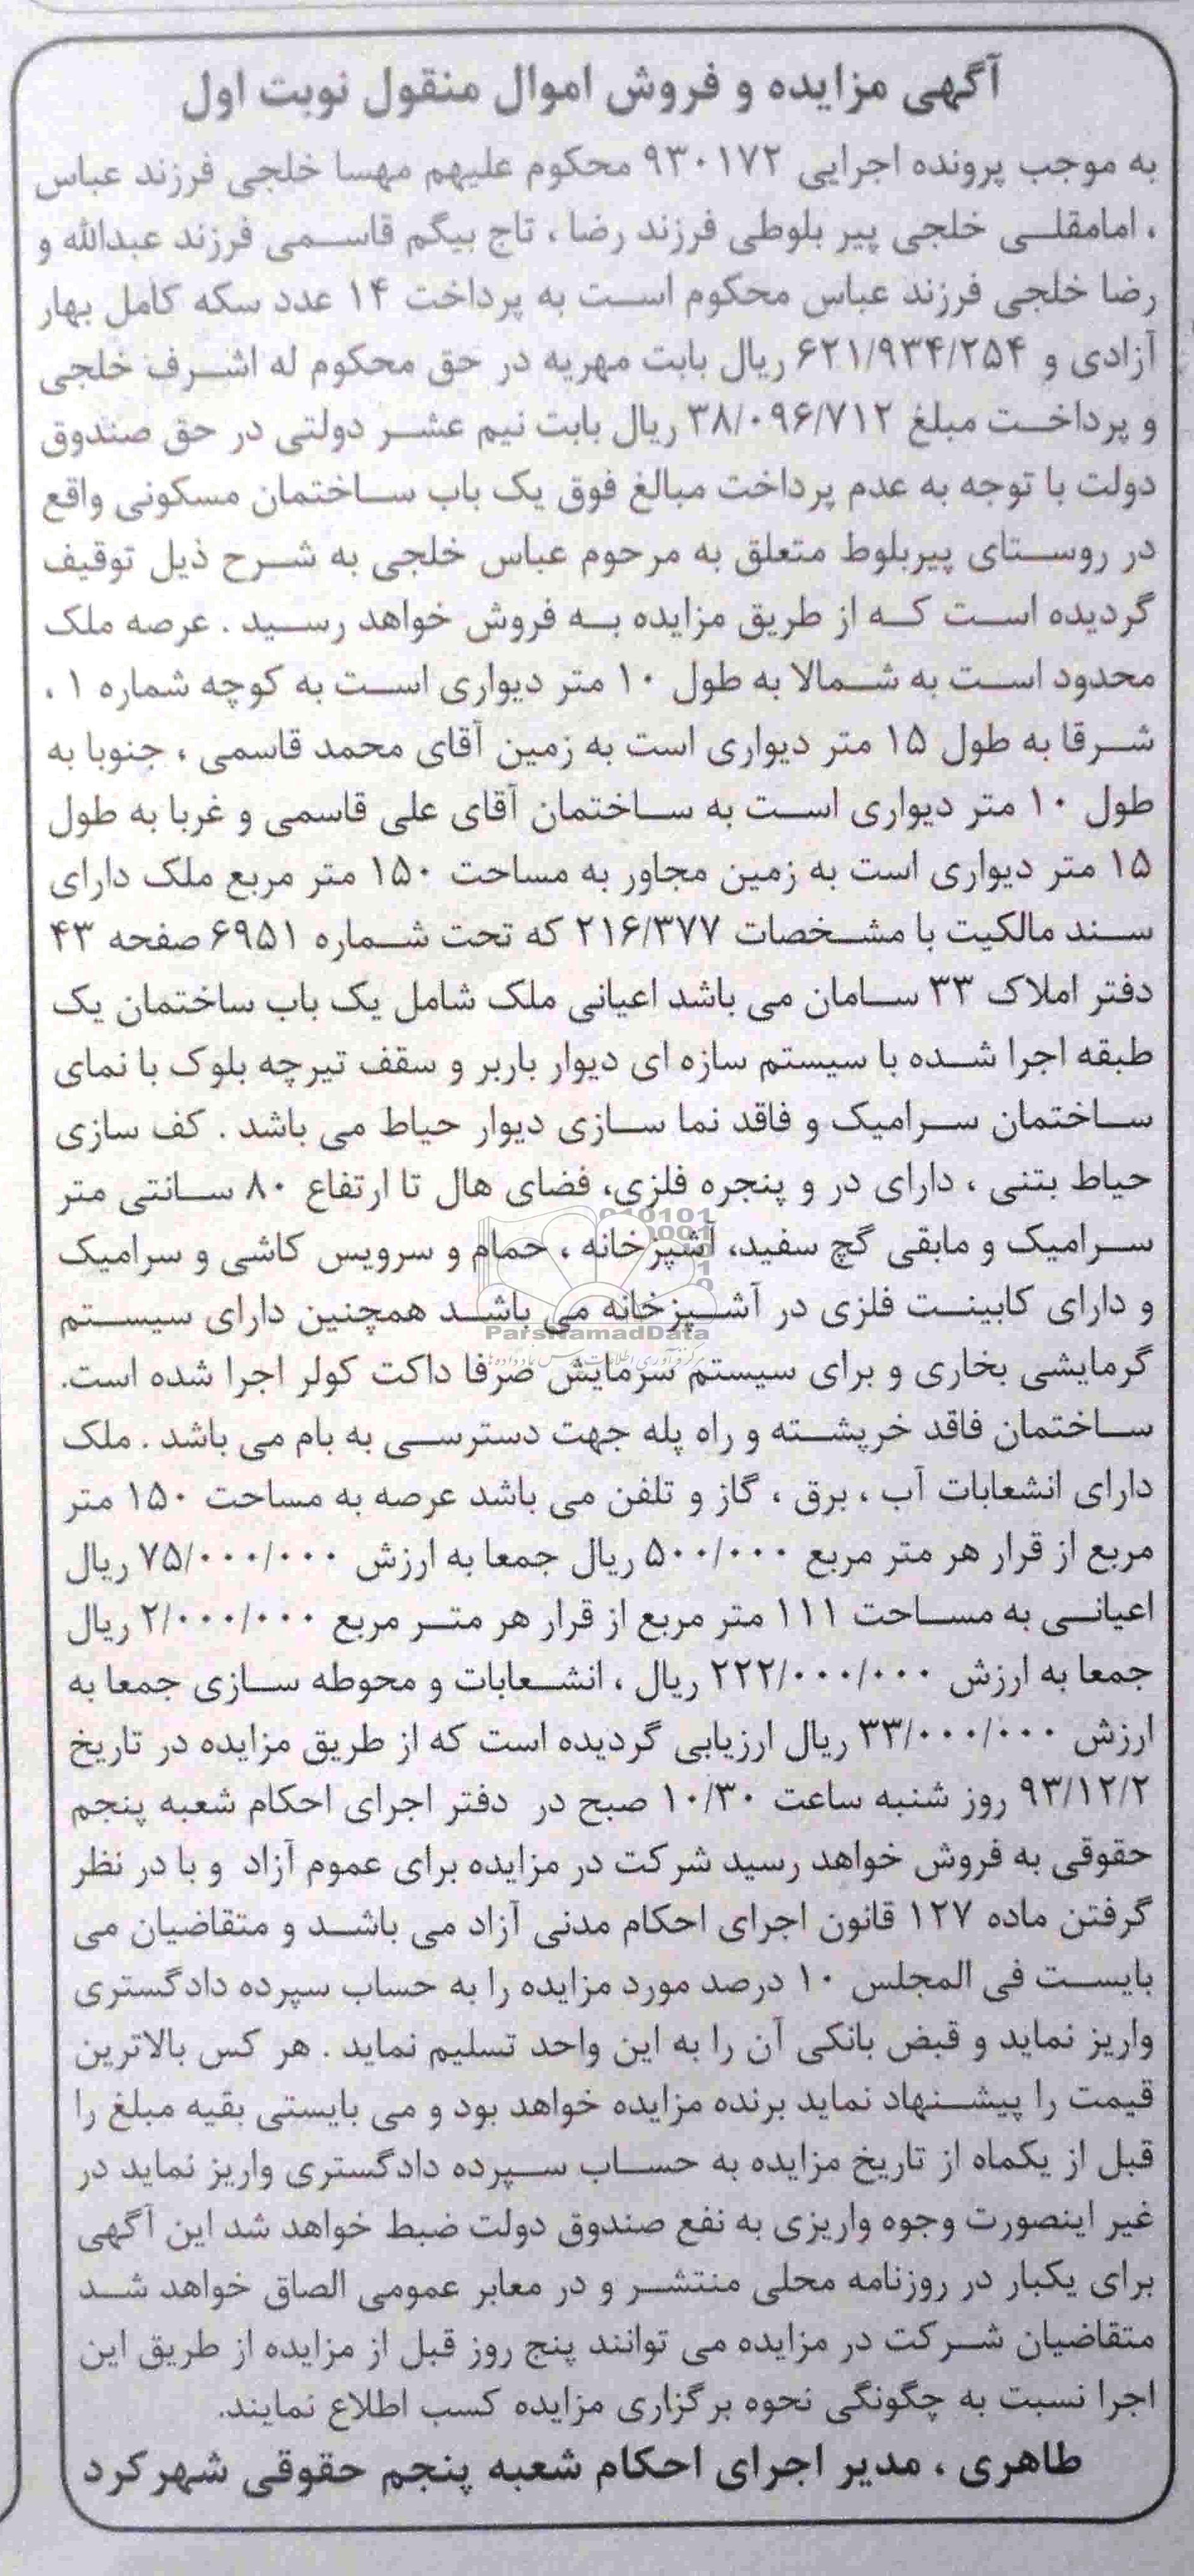 آگهی مزایده و فروش اموال منقول نوبت اول
به موجب پرونده اجرایی ۹۳۰۱۷۲ محکوم علیهم مهسا خلجی فرزند عباس
، امامقلی خلجی پیر بلوطی فرزند رضا ، تاج بیگم قاسمی فرزند عبدالله و
رضا خلجی فرزند عباس محکوم است به پرداخت ۱۴ عدد سکه کامل بهار
آزادی و ۶۲۱/۹۳۴/۲۵۴ ریال بابت مهریه در حق محکوم له اشرف خلجی
و پرداخت مبلغ ۳۸/۰۹۶/۷۱۲ ریال بابت نیم عشر دولتی در حق صندوق
دولت با توجه به عدم پرداخت مبالغ فوق یک باب ساختمان مسکونی واقع
در روستای پیربلوط متعلق به مرحوم عباس خلجی به شرح ذیل توقیف
گردیده است که از طریق مزایده به فروش خواهد رسید . عرصه ملک
محدود است به شمالا به طول ۱۰ متر دیواری است به کوچه شماره ۱ ،
شرقا به طول ۱۵ متر دیواری است به زمین آقای محمد قاسمی ، جنوبا به
طول ۱۰ متر دیواری است به ساختمان آقای علی قاسمی و غربا به طول
۱۵ متر دیواری است به زمین مجاور به مساحت ۱۵۰ متر مربع ملک دارای
سند مالکیت با مشخصات ۲۱۶/۳۷۷ که تحت شماره ۶۹۵۱ صفحه ۴۳
دفتر املاک ۳۳ سامان می باشد اعیانی ملک شامل یک باب ساختمان یک
طبقه اجرا شده با سیستم سازه ای دیوار باربر و سقف تیرچه بلوک با نمای
ساختمان سرامیک و فاقد نما سازی دیوار حیاط می باشد . کف سازی
حیاط بتنی ، دارای در و پنجره فلزی، فضای هال تا ارتفاع ۸۰ سانتی متر
سرامیک و مابقی گچ سفید، آشپزخانه ، حمام و سرویس کاشی و سرامیک
و دارای کابینت فلزی در آشپزخانه می باشد همچنین دارای سیستم
ParsNamadData
گرمایشی بخاری و برای سیستم سرمایش صرفا داکت کولر اجرا شده است.
ساختمان فاقد خرپشته و راه پله جهت دسترسی به بام می باشد . ملک
دارای انشعابات آب ، برق ، گاز و تلفن می باشد عرصه به مساحت ۱۵۰ متر
مربع از قرار هر متر مربع ۵۰۰/۰۰۰ ریال جمعا به ارزش ۷۵/۰۰۰/۰۰۰ ریال
اعیانی به مساحت ۱۱۱ متر مربع از قرار هر متر مربع ۲/۰۰۰/۰۰۰ ریال
جمعا به ارزش ۲۲۲/۰۰۰/۰۰۰ ریال ، انشعابات و محوطه سازی جمعا به
ارزش ۳۳/۰۰۰/۰۰۰ ریال ارزیابی گردیده است که از طریق مزایده در تاریخ
۹۳/۱۲/۲ روز شنبه ساعت ۱۰/۳۰ صبح در دفتر اجرای احکام شعبه پنجم
حقوقی به فروش خواهد رسید شرکت در مزایده برای عموم آزاد و با در نظر
گرفتن ماده ۱۲۷ قانون اجرای احکام مدنی آزاد می باشد و متقاضیان می
بایست فی المجلس ۱۰ درصد مورد مزایده را به حساب سپرده دادگستری
واریز نماید و قبض بانکی آن را به این واحد تسلیم نماید . هر کس بالاترین
قیمت را پیشنهاد نماید برنده مزایده خواهد بود و می بایستی بقیه مبلغ را
قبل از یکماه از تاریخ مزایده به حساب سپرده دادگستری واریز نماید در
غیر اینصورت وجوه واریزی به نفع صندوق دولت ضبط خواهد شد این آگهی
برای یکبار در روزنامه محلی منتشر و در معابر عمومی الصاق خواهد شد
متقاضیان شرکت در مزایده می توانند پنج روز قبل از مزایده از طریق این
اجرا نسبت به چگونگی نحوه برگزاری مزایده کسب اطلاع نمایند.
طاهری ، مدیر اجرای احکام شعبه پنجم حقوقی شهرکرد